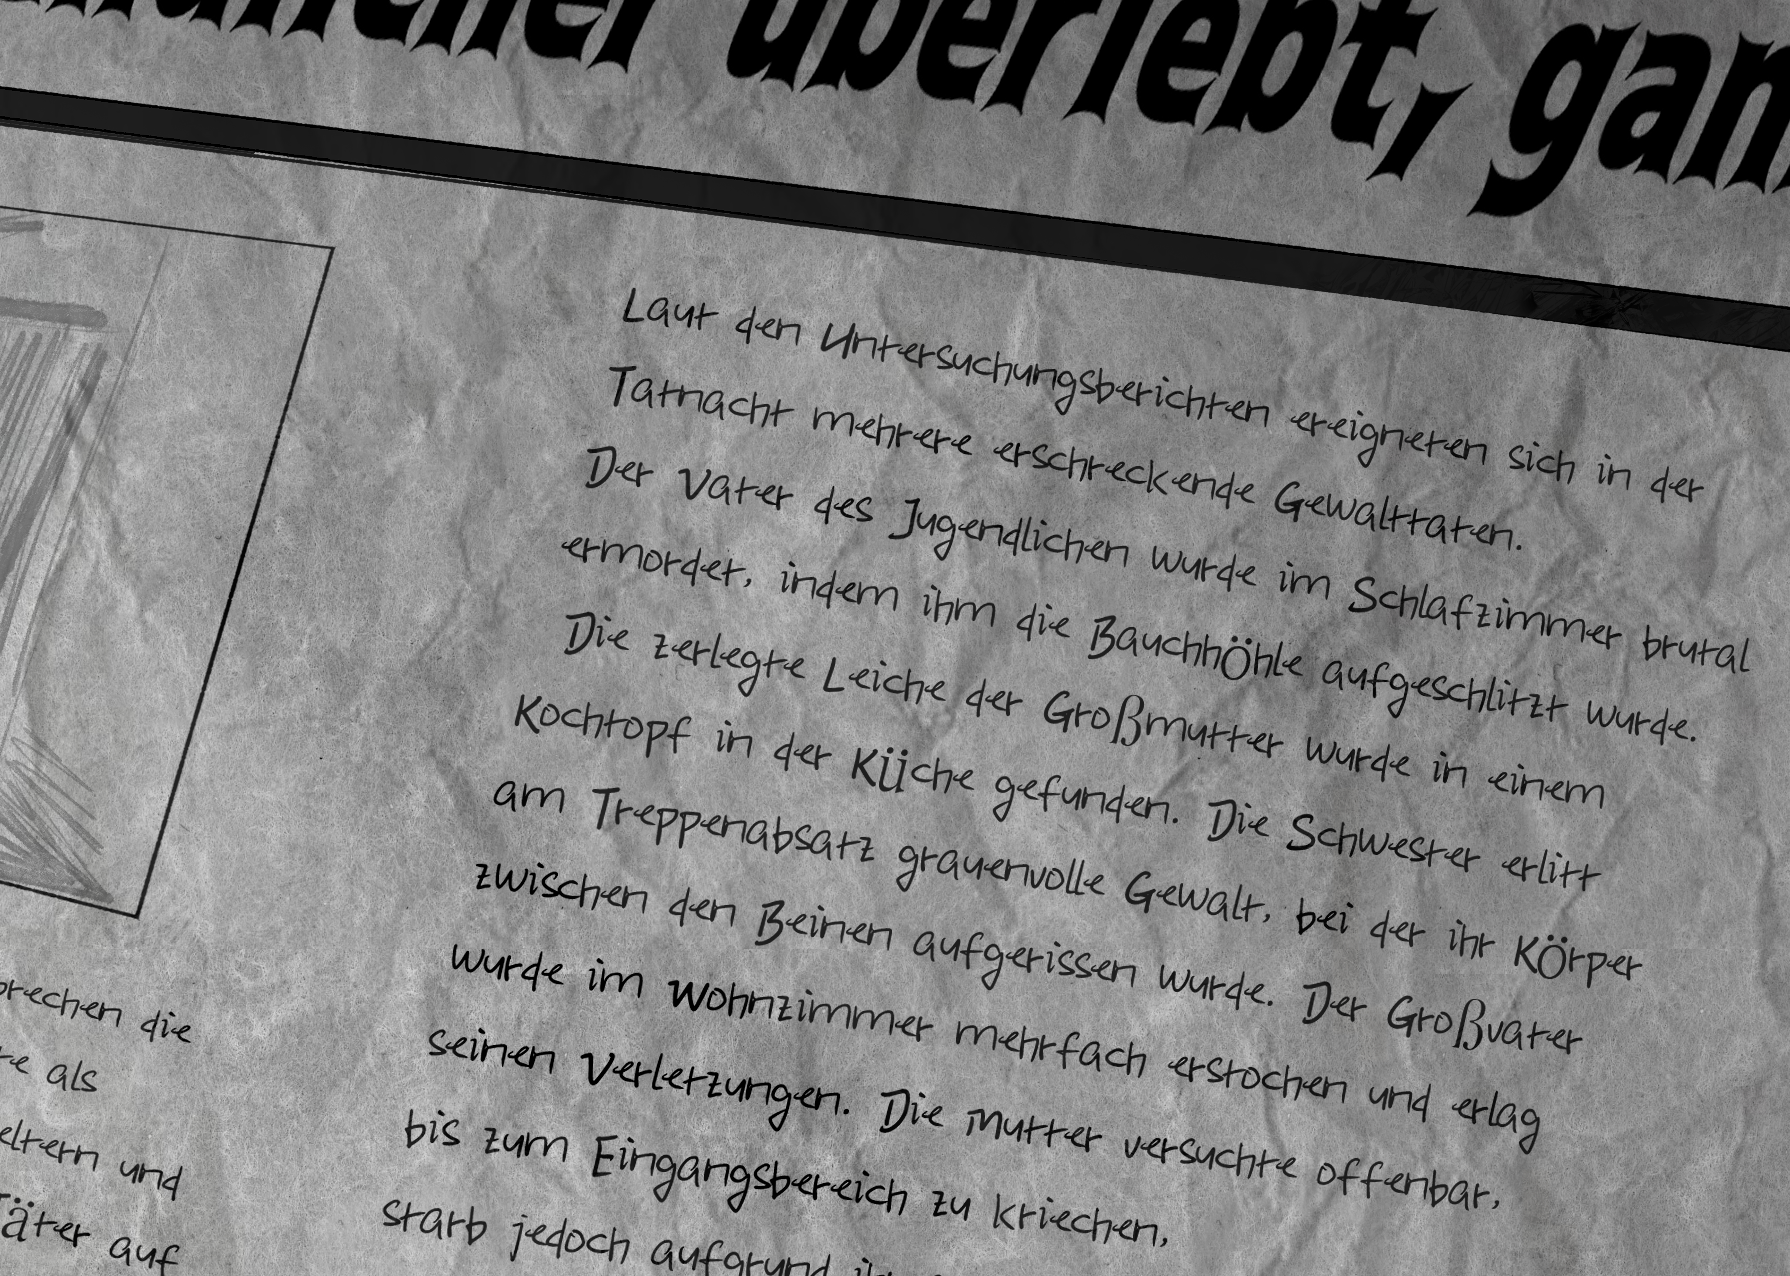 überlebt,
Laut den Untersuchungsberichten ereigneten sich in der
Tatnacht mehrere erschreckende Gewalttaten.
Der Vater des Jugendlichen wurde im Schlafzimmer brutal
ermordet, indem ihm die BauchhÖhle aufgeschlitzt wurde.
Die zerlegte Leiche der Großmutter wurde in einem
Kochtopf in der Küche gefunden. Die Schwester erlitt
am Treppenabsatz grauenvolle Gewalt, bei der ihr KÖrper
zwischen den Beinen aufgerissen wurde. Der Großvater
wurde im Wohnzimmer mehrfach erstochen und erlag
seinen Verletzungen. Die Mutter versuchte offenbar,
bis zum Eingangsbereich zu kriechen,
starb jedoch aufgrund
die
als
und
auf